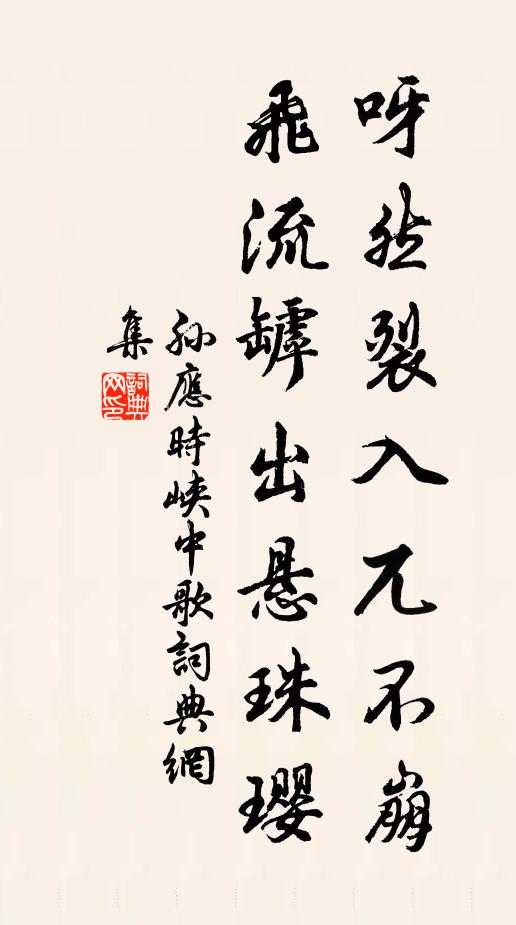 呀然裂入兀不崩
飛流罅出悬珠瓔
孙應時峡中歌詞典網
集
詞典
网印